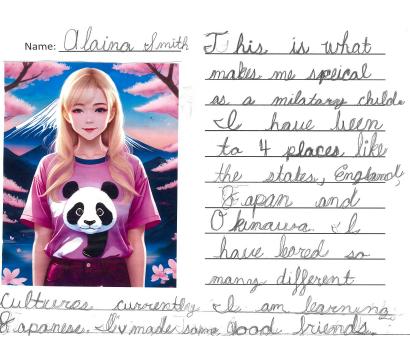 Name: Alaina Smith
This is what
makes me speical
as a milatary child.
I have been
to 4 places like
the states, England,
Japan and
Okinawa. I
have lared so
many different
cultures currently I am learning
Japanese. I v made some good friends.